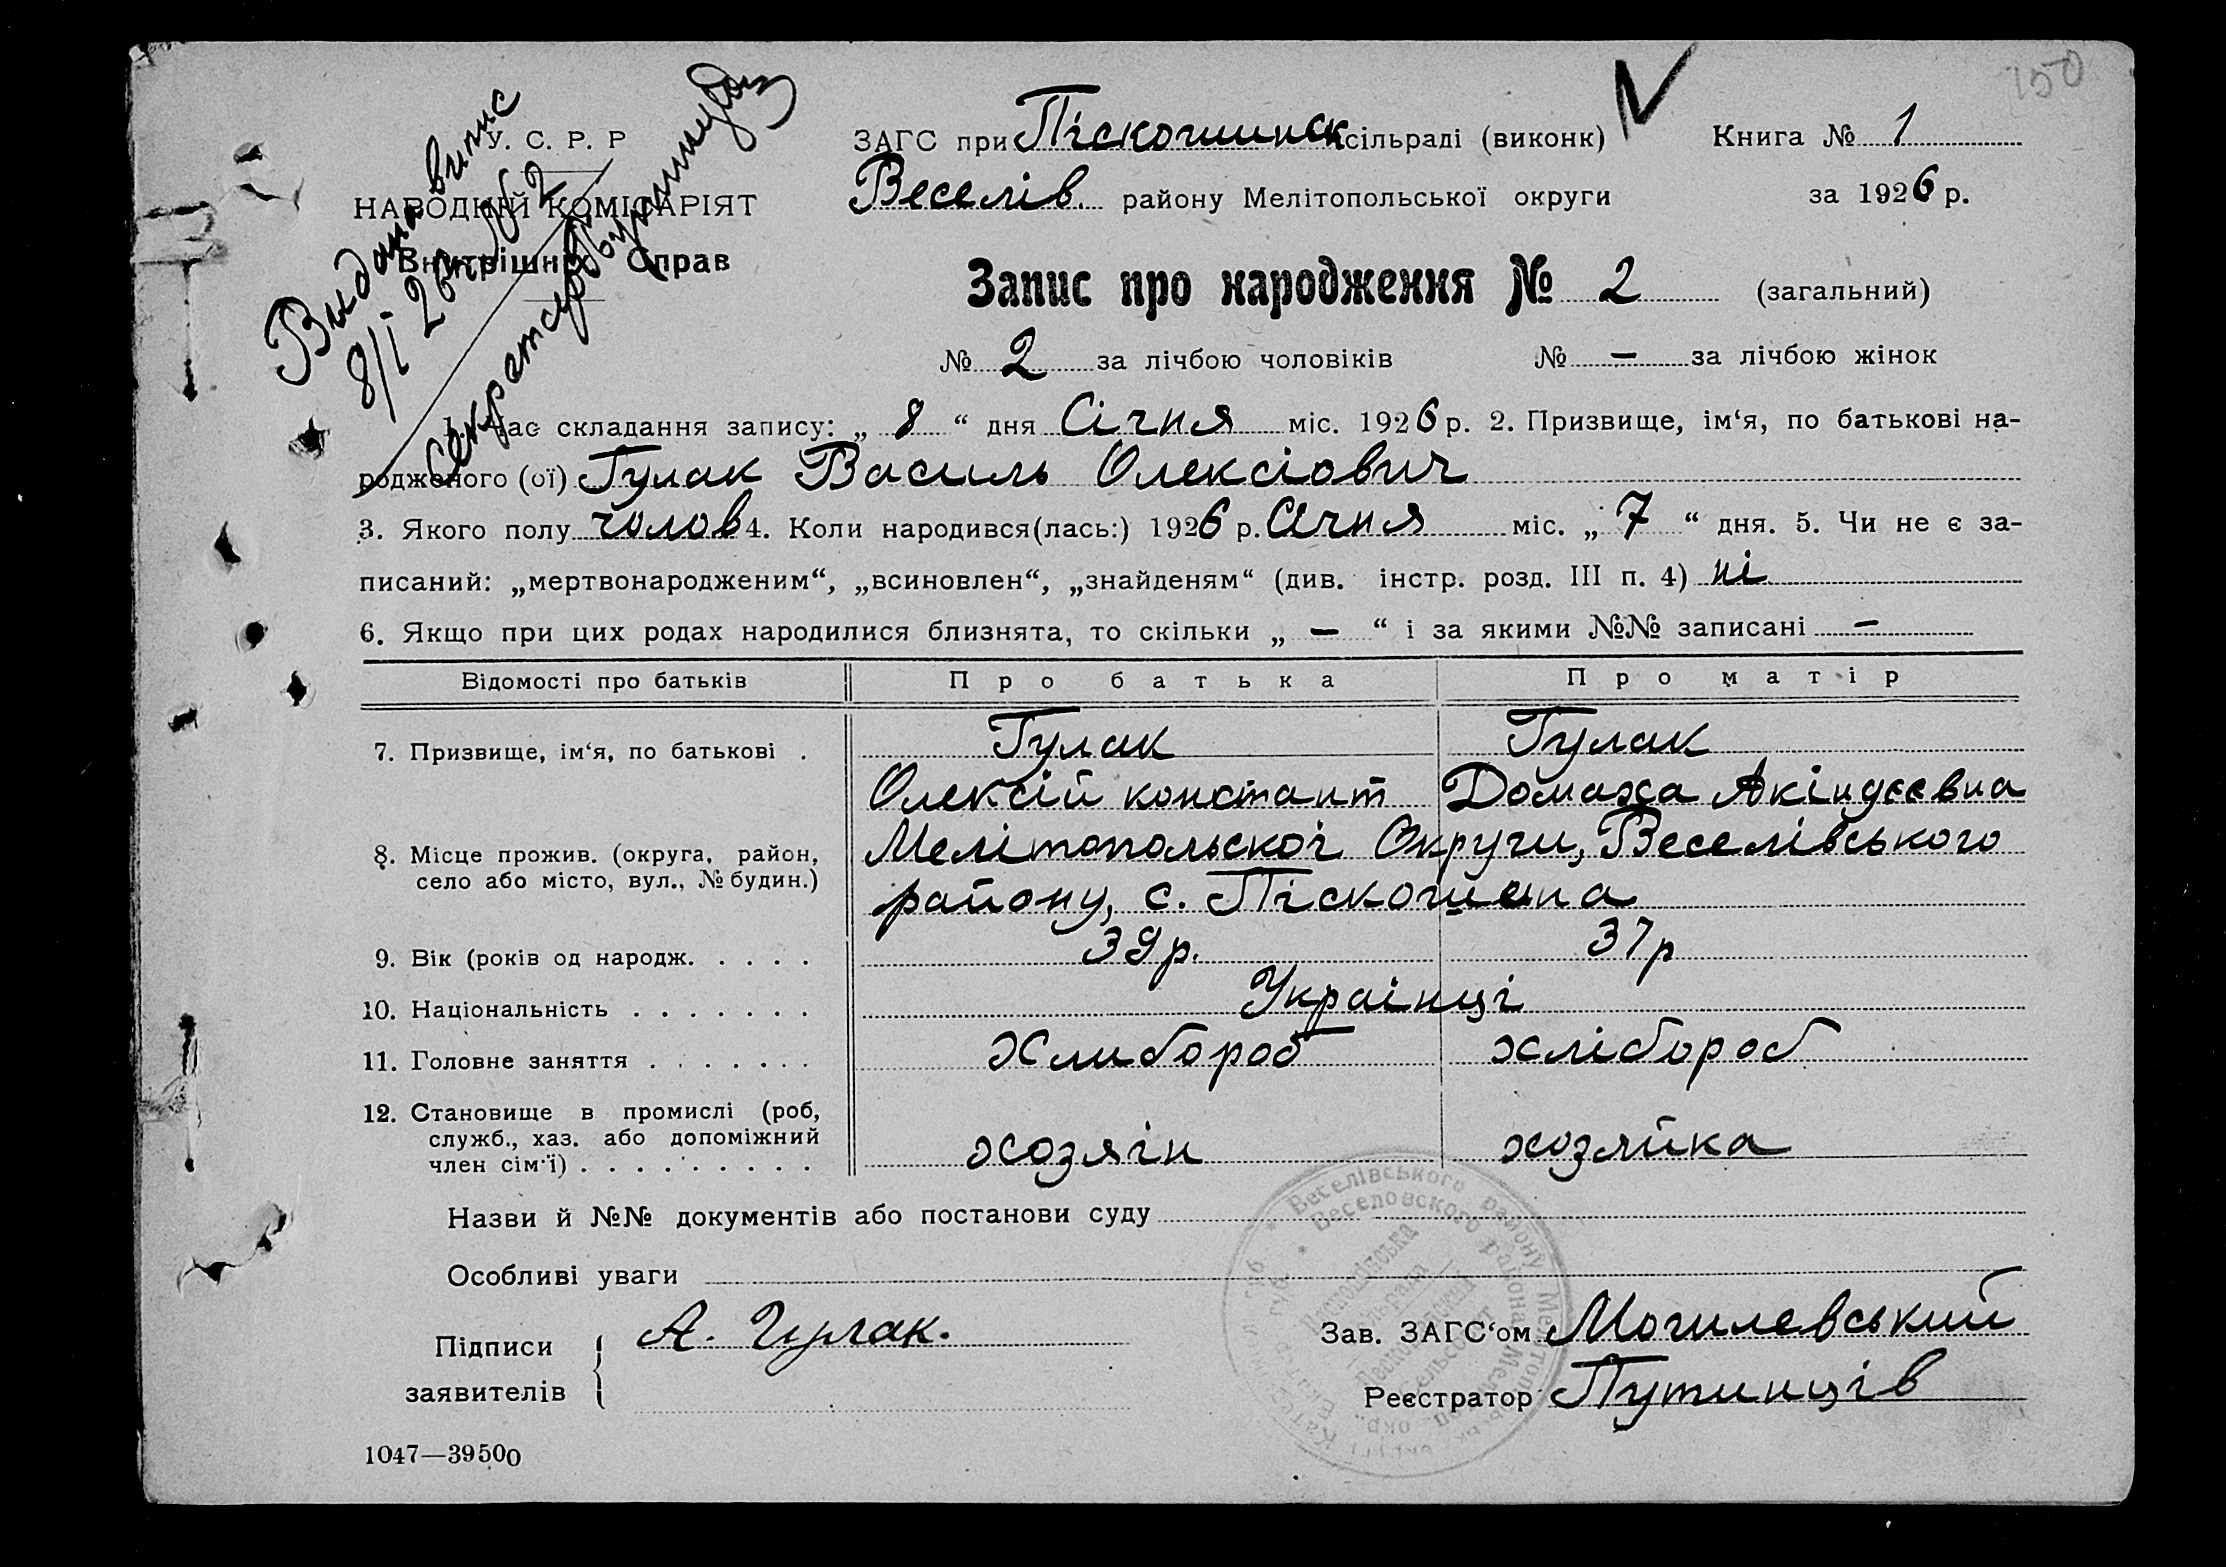 150
У. С. Р. Р
НАРОДНІЙ КОМІСАРІЯТ
Внутрішніх Справ
Видана випис
8/I 26 р. № 2
Секретар
ЗАГС при Піскошинск сільраді (виконк)
Книга № 1
Веселів. району Мелітопольської округи
за 1926 р.
Запис про народження № 2 (загальний)
№ 2 за лічбою чоловіків № — за лічбою жінок
1. Час складання запису: „ 8 “ дня Січня міс. 1926 р. 2. Призвище, ім‘я, по батькові на-
родженого (ої) Гулак Василь Олексіович
3. Якого полу чолов 4. Коли народився(лась:) 1926 р. Січня міс. „ 7 “ дня. 5. Чи не є за-
писаний: „мертвонародженим“, „всиновлен“, „знайденям“ (див. інстр. розд. III п. 4) ні
6. Якщо при цих родах народилися близнята, то скільки „ — “ і за якими №№ записані —
Відомості про батьків Про батька Про матір
7. Призвище, ім‘я, по батькові . Гулак Гулак
Олексій констант Домаха Акіндєєвна
8. Місце прожив. (округа, район, Мелітопольскоі Округи, Веселівського
село або місто, вул., № будин.) району, с. Піскошена
9. Вік (років од народж. . . . . 39р. 37р
10. Національність . . . . . . . Украінці
11. Головне заняття . . . . . . . Хлибороб хлібороб
12. Становище в промислі (роб,
служб., хаз. або допоміжний
член сім‘ї) . . . . . . . . . хозяін хозяйка
Назви й №№ документів або постанови суду
Особливі уваги
Підписи
заявителів
А. Гулак.
Зав. ЗАГС‘ом Могилевський
Реєстратор Путинців
Веселівського району Мелітопольськ
Веселовского района Мелитоп. окр.
1047—39500